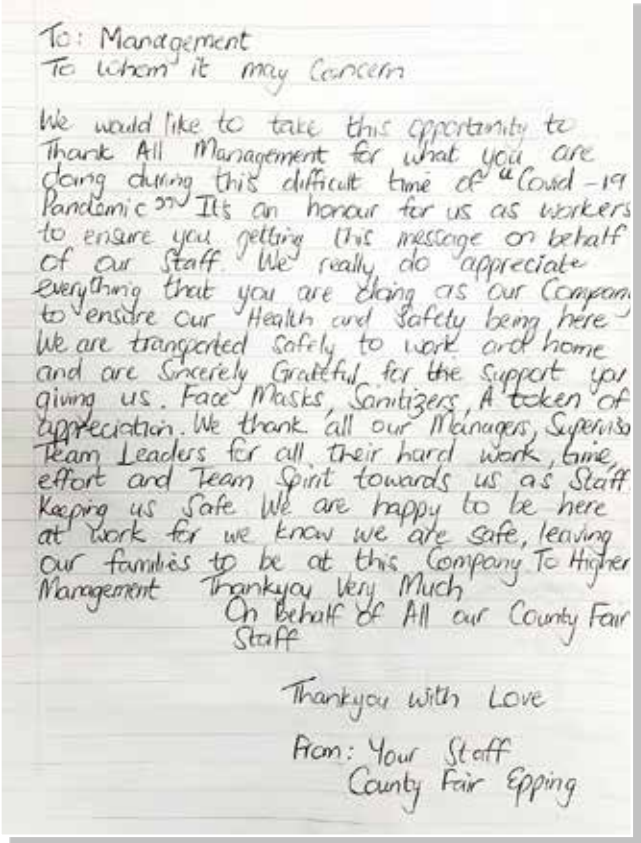 To: Management
To Whom it may Concern
We would like to take this opportunity to
Thank All Management for what you are
doing during this difficult time of "Covid-19
Pandemic"" It's an honour for us as workers
to ensure you getting this message on behalf
of our Staff. We really do appreciate
everything that you are doing as our Company
to ensure our Health and Safety being here
We are transported safely to work and home
and are Sincerely Grateful for the support you
giving us. Face Masks, Sanitizers, A token of
appreciation. We thank all our Managers, Superviso
Team Leaders for all their hard work, time,
effort and Team Spirit towards us as Staff.
Keeping us Safe We are happy to be here
at work for we know we are safe, leaving
our families to be at this Company To Higher
Management Thankyou Very Much
On Behalf of All our County Fair
Staff
Thankyou with Love
From: Your Staff
County Fair Epping